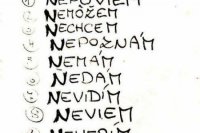 NEPOVIEM
NEMÔŽEM
NECHCEM
NEPOZNÁM
NEMÁM
NEDÁM
NEVIDÍM
NEVIEM
NEVERÍM